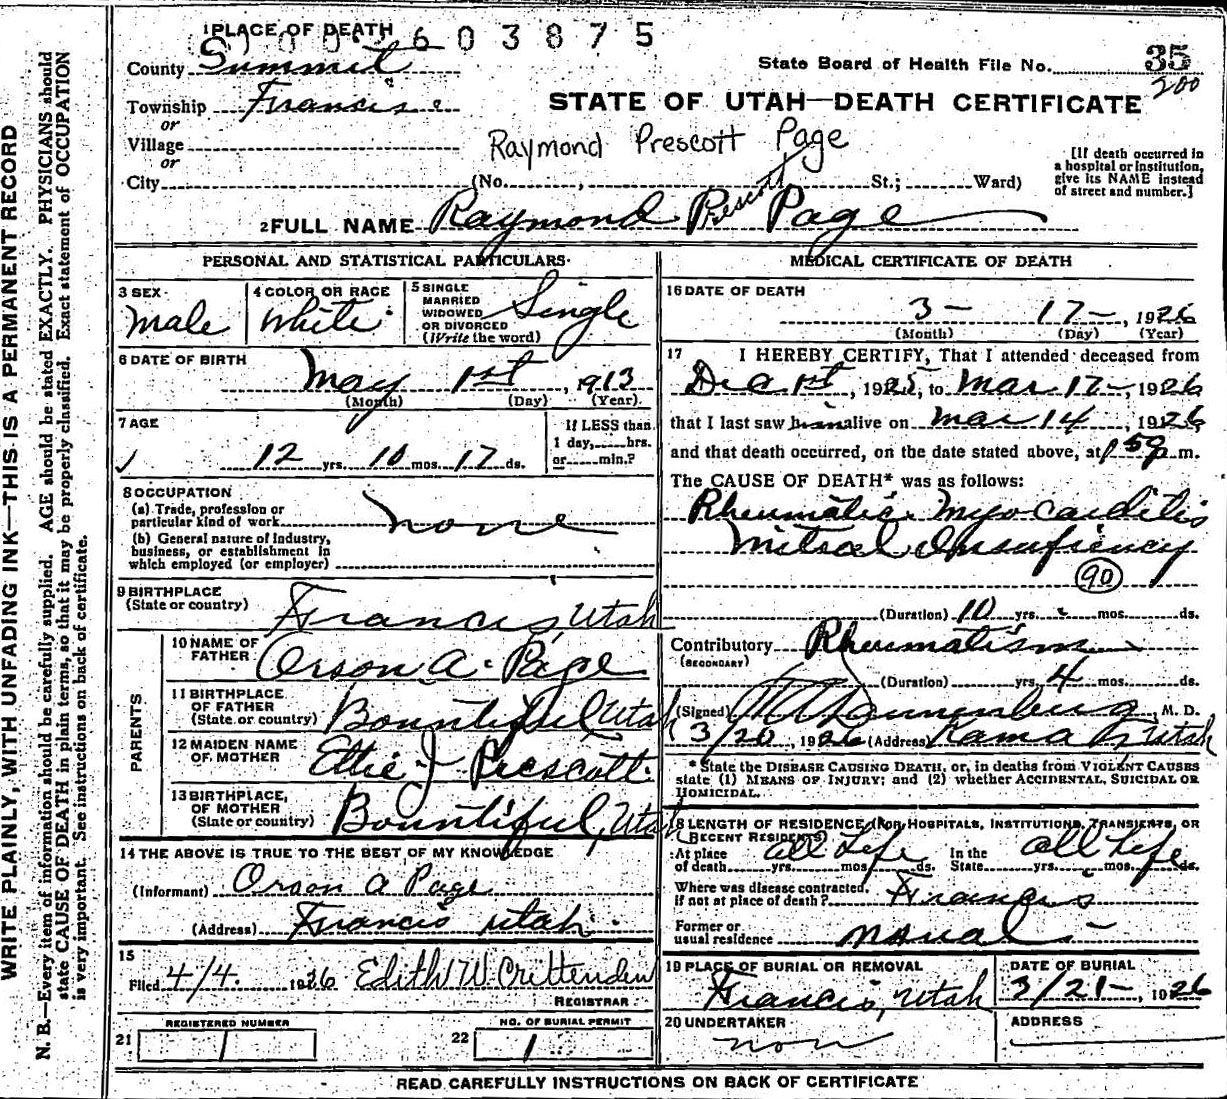 WRITE PLAINLY, WITH UNFADING INK—THIS IS A PERMANENT RECORD
N. B.—Every item of information should be carefully supplied. AGE should be stated EXACTLY. PHYSICIANS should
state CAUSE OF DEATH in plain terms, so that it may be properly classified. Exact statement of OCCUPATION
is very important. See instructions on back of certificate.
1 PLACE OF DEATH
603875
County Summit
Township Francis
or
Village
or
City
State Board of Health File No. 35
200
STATE OF UTAH—DEATH CERTIFICATE
Raymond Prescott Page
(No. , St.; Ward)
[If death occurred in
a hospital or institution,
give its NAME instead
of street and number.]
2 FULL NAME Raymond Prescott Page
PERSONAL AND STATISTICAL PARTICULARS
3 SEX
Male
4 COLOR OR RACE
White
5 SINGLE
MARRIED
WIDOWED
OR DIVORCED
(Write the word)
Single
6 DATE OF BIRTH
May 1st, 1913
(Month) (Day) (Year)
7 AGE
12 yrs. 10 mos. 17 ds.
If LESS than
1 day, hrs.
or min.?
8 OCCUPATION
(a) Trade, profession or
particular kind of work none
(b) General nature of industry,
business, or establishment in
which employed (or employer)
9 BIRTHPLACE
(State or country) Francis, Utah
PARENTS
10 NAME OF
FATHER Orson A. Page
11 BIRTHPLACE
OF FATHER
(State or country) Bountiful Utah
12 MAIDEN NAME
OF MOTHER Ettie J Prescott
13 BIRTHPLACE,
OF MOTHER
(State or country) Bountiful, Utah
14 THE ABOVE IS TRUE TO THE BEST OF MY KNOWLEDGE
(Informant) Orson A Page
(Address) Francis Utah
15
Filed 4/4. 1926 Edith W. Crittenden
REGISTRAR
REGISTERED NUMBER
21 1
NO. OF BURIAL PERMIT
22 1
MEDICAL CERTIFICATE OF DEATH
16 DATE OF DEATH
3- 17-, 1926
(Month) (Day) (Year)
17 I HEREBY CERTIFY, That I attended deceased from
Dec 1st, 1925, to Mar 17-, 1926
that I last saw him alive on Mar 14, 1926,
and that death occurred, on the date stated above, at 1 50 p m.
The CAUSE OF DEATH* was as follows:
Rheumatic Myocarditis
Mitral Insufiency
90
(Duration) 10 yrs. mos. ds.
Contributory Rheumatism
(SECONDARY)
(Duration) yrs. 4 mos. ds.
(Signed) , M. D.
3/20, 1926 (Address) Kamas Utah
* State the DISEASE CAUSING DEATH, or, in deaths from VIOLENT CAUSES
state (1) MEANS OF INJURY; and (2) whether ACCIDENTAL, SUICIDAL OR
HOMICIDAL.
18 LENGTH OF RESIDENCE (FOR HOSPITALS, INSTITUTIONS, TRANSIENTS, OR
RECENT RESIDENTS)
At place
of death All Life yrs. mos. ds. In the
State All Life yrs. mos. ds.
Where was disease contracted,
if not at place of death? Francis
Former or
usual residence
19 PLACE OF BURIAL OR REMOVAL
Francis, Utah
DATE OF BURIAL
3/21-, 1926
20 UNDERTAKER
non
ADDRESS
READ CAREFULLY INSTRUCTIONS ON BACK OF CERTIFICATE